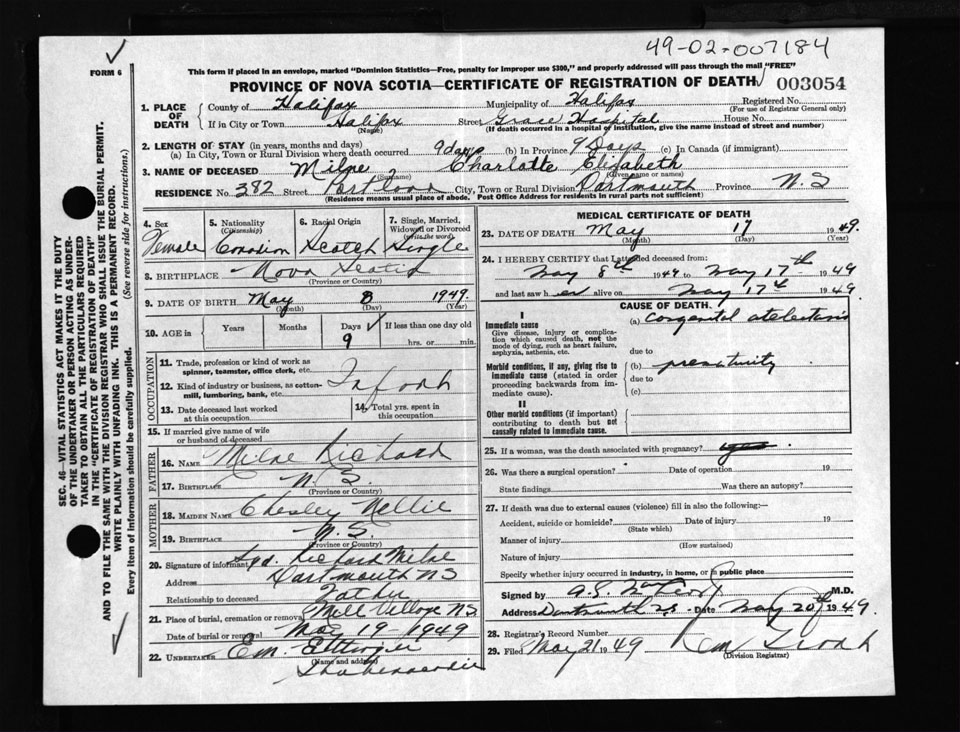 49-02-007184
FORM 6
This form if placed in an envelope, marked "Dominion Statistics—Free, penalty for improper use $300," and properly addressed will pass through the mail "FREE"
PROVINCE OF NOVA SCOTIA—CERTIFICATE OF REGISTRATION OF DEATH 003054
1. PLACE OF DEATH County of Halifax Municipality of Halifax Registered No.
(For use of Registrar General only)
If in City or Town Halifax Street Grace Hospital House No.
(Name) (If death occurred in a hospital or institution, give the name instead of street and number)
2. LENGTH OF STAY (in years, months and days)
(a) In City, Town or Rural Division where death occurred 9 days (b) In Province 9 Days (c) In Canada (if immigrant)
3. NAME OF DECEASED Milne, Charlotte Elizabeth
(Surname) (Given name or names)
RESIDENCE No. 382 Street Portland City, Town or Rural Division Dartmouth Province N.S
(Residence means usual place of abode. Post Office Address for residents in rural parts not sufficient)
4. Sex Female
5. Nationality (Citizenship) Canadian
6. Racial Origin Scotch
7. Single, Married, Widowed or Divorced (write the word) Single
8. BIRTHPLACE Nova Scotia
(Province or Country)
9. DATE OF BIRTH May 8 1949
(Month) (Day) (Year)
10. AGE in Years Months Days 9 If less than one day old
hrs. or min.
OCCUPATION
11. Trade, profession or kind of work as spinner, teamster, office clerk, etc.
12. Kind of industry or business, as cotton-mill, lumbering, bank, etc. Infant
13. Date deceased last worked at this occupation
14. Total yrs. spent in this occupation
15. If married give name of wife or husband of deceased
FATHER
16. NAME Milne Richard
17. BIRTHPLACE N.S.
(Province or Country)
MOTHER
18. MAIDEN NAME Chesley Nellie
19. BIRTHPLACE N.S.
(Province or Country)
20. Signature of informant Sgd. Richard Milne
Address Dartmouth NS
Relationship to deceased Father
21. Place of burial, cremation or removal Mill Village NS
Date of burial or removal May 19-1949
22. UNDERTAKER Em. Ettinger
(Name and address)
Shubenacadie
MEDICAL CERTIFICATE OF DEATH
23. DATE OF DEATH May 17 1949.
(Month) (Day) (Year)
24. I HEREBY CERTIFY that I attended deceased from:
May 8th 1949 to May 17th 1949
and last saw her alive on May 17th 1949.
CAUSE OF DEATH.
I
Immediate cause (a) congenital atelectasis
Give disease, injury or complication which caused death, not the mode of dying, such as heart failure, asphyxia, asthenia, etc.
due to
Morbid conditions, if any, giving rise to immediate cause (stated in order proceeding backwards from immediate cause). (b) prematurity
due to
(c)
II
Other morbid conditions (if important) contributing to death but not causally related to immediate cause.
25. If a woman, was the death associated with pregnancy?
26. Was there a surgical operation? Date of operation 19
State findings Was there an autopsy?
27. If death was due to external causes (violence) fill in also the following:—
Accident, suicide or homicide? Date of injury 19
(State which)
Manner of injury
(How sustained)
Nature of injury
Specify whether injury occurred in industry, in home, or in public place
Signed by M.D.
Address Dartmouth N.S. Date May 20th 1949.
28. Registrar's Record Number
29. Filed May 21 1949
(Division Registrar)
SEC. 46—VITAL STATISTICS ACT MAKES IT THE DUTY
OF THE UNDERTAKER OR PERSON ACTING AS UNDER-
TAKER TO OBTAIN ALL THE PARTICULARS REQUIRED
IN THE "CERTIFICATE OF REGISTRATION OF DEATH"
AND TO FILE THE SAME WITH THE DIVISION REGISTRAR WHO SHALL ISSUE THE BURIAL PERMIT.
WRITE PLAINLY WITH UNFADING INK. THIS IS A PERMANENT RECORD.
Every item of information should be carefully supplied. (See reverse side for instructions.)